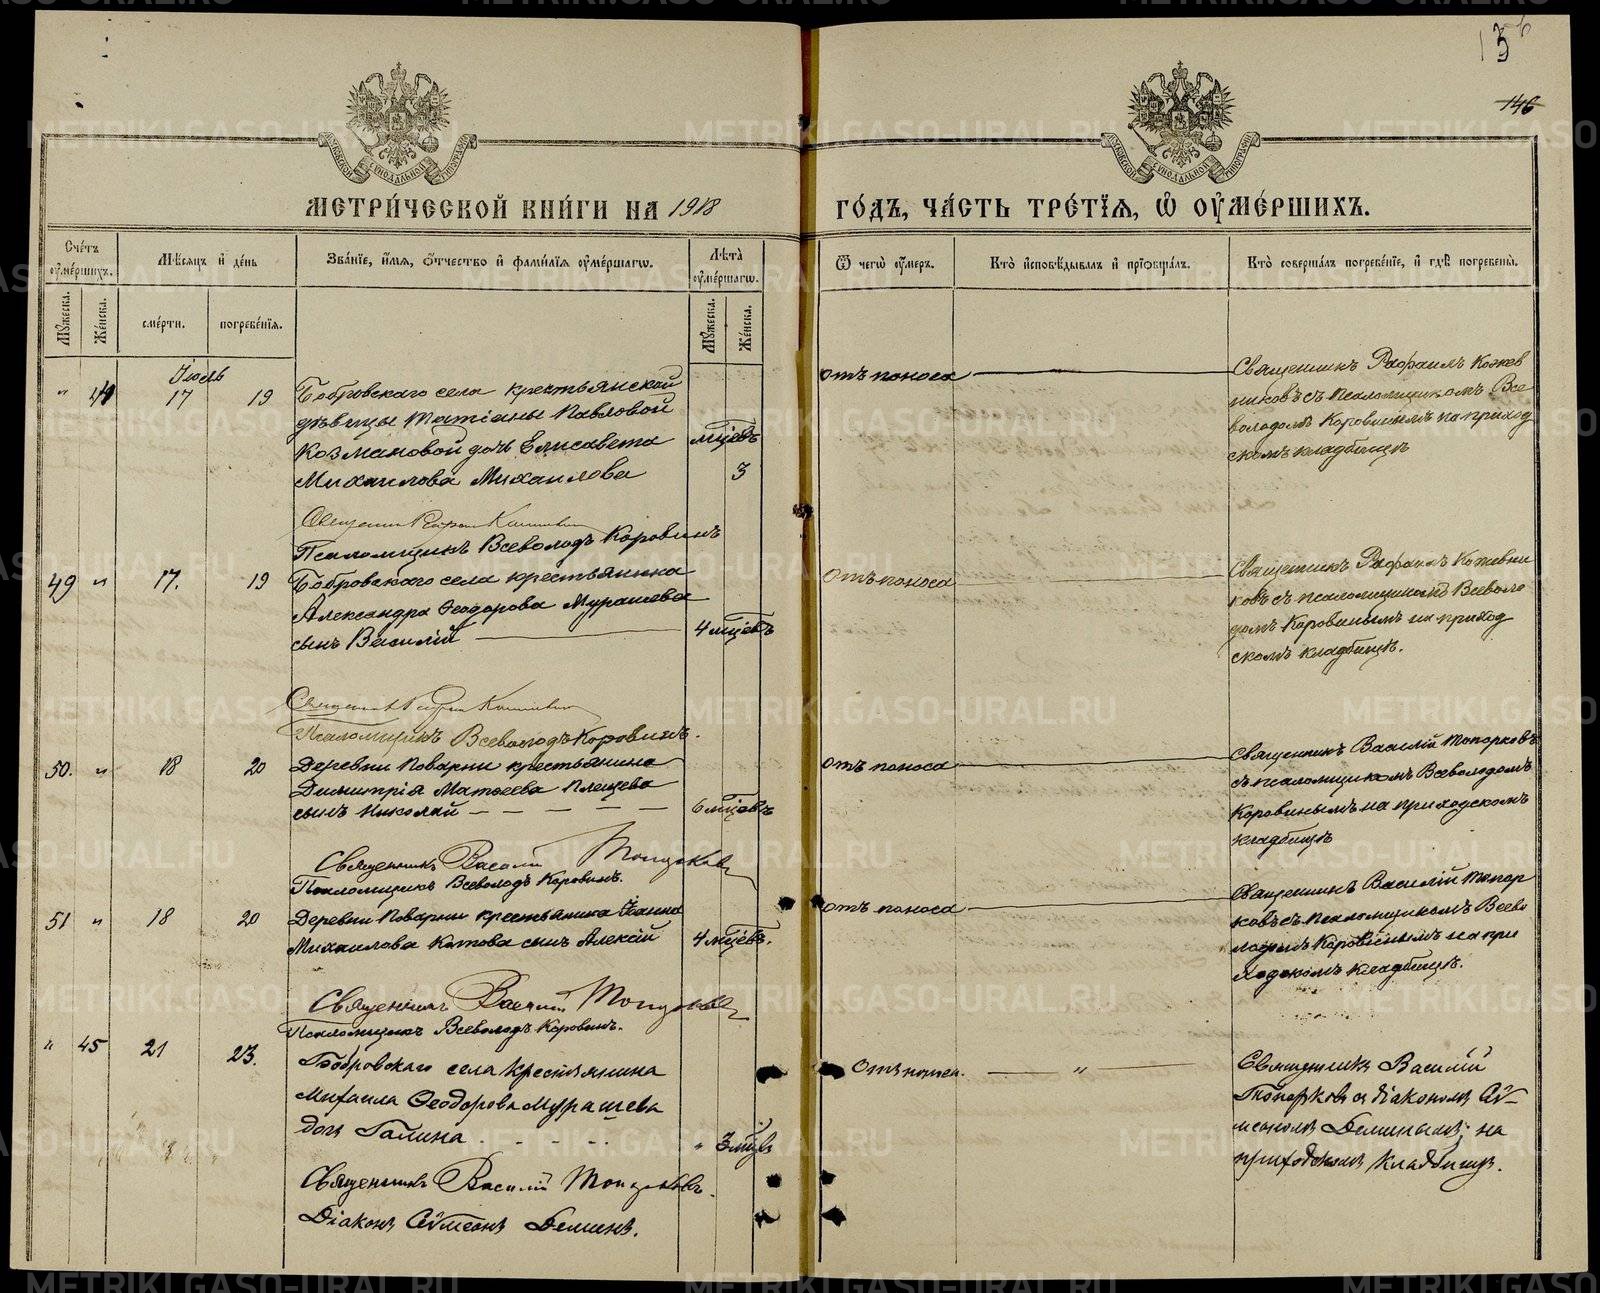 136
146
МЕТРИ́ЧЕСКОЙ КНИ́ГИ НА 1918
ГО́ДЪ, ЧА́СТЬ ТРЕ́ТЇЯ, Ѽ ОУ҆МЕ́РШИХЪ.
Сче́тъ оу҆ме́ршихъ.
Мѣ́сяцъ и҆ де́нь
Зва́нїе, и҆́мя, ѻ҆́тчество и҆ фами́лїя оу҆ме́ршагѡ.
Лѣ́та оу҆ме́ршагѡ.
Ѿ чегѡ̀ оу҆́меръ.
Кто̀ и҆сповѣ́дывалъ и҆ прїѡбща́лъ.
Кто̀ соверша́лъ погребе́нїе, и҆ гдѣ̀ погребены̀.
Мꙋ́жеска.
Же́нска.
сме́рти.
погребе́нїя.
Мꙋ́жеска.
Же́нска.
Іюль
" 44 17 19
Бобровскаго села крестьянской
дѣвицы Татіаны Павловой
Козмановой дочь Елисавета
Михаилова Михаилова
мцевъ
3
отъ поноса
Священникъ Рафаилъ Кожев
никовъ съ псаломщикомъ Все
володомъ Коровинымъ на приход
скомъ кладбищѣ
Священникъ Рафаилъ
Псаломщикъ Всеволодъ Коровинъ
49 " 17. 19
Бобровскаго села крестьянина
Александра Ѳеодорова Мурашева
сынъ Василій
4 мцевъ
Отъ поноса
Священникъ Рафаилъ Кожевни
ковъ съ псаломщикомъ Всеволо
домъ Коровинымъ на приход
скомъ кладбищѣ.
Священникъ Рафаилъ
Псаломщикъ Всеволодъ Коровинъ.
50. " 18 20
Деревни Поварни крестьянина
Димитрія Матѳеева Плещева
сынъ Николай
6 мцевъ
отъ поноса
Священникъ Василій Топорковъ
съ псаломщикомъ Всеволодомъ
Коровинымъ на приходскомъ
кладбищѣ
Священникъ Василій Топорковъ
Псаломщикъ Всеволодъ Коровинъ.
51 " 18 20
Деревни Поварни крестьянина Іоанна
Михаилова Котова сынъ Алексій
4 мцевъ.
отъ поноса
Священникъ Василій Топор
ковъ съ псаломщикомъ Всево
лодомъ Коровинымъ на при
ходскомъ кладбищѣ.
Священникъ Василій Топорковъ
Псаломщикъ Всеволодъ Коровинъ.
" 45 21 23.
Бобровскаго села крестьянина
Михаила Ѳеодорова Мурашева
дочь Галина
" 3 мцѣв
Отъ понос.
"
Священникъ Василій
Топорковъ съ діакономъ Сѵ-
меономъ Деминымъ; на
приходскомъ кладбищѣ.
Священникъ Василій Топорковъ.
Діаконъ Сѵмеонъ Деминъ.
METRIKI.GASO-URAL.RU